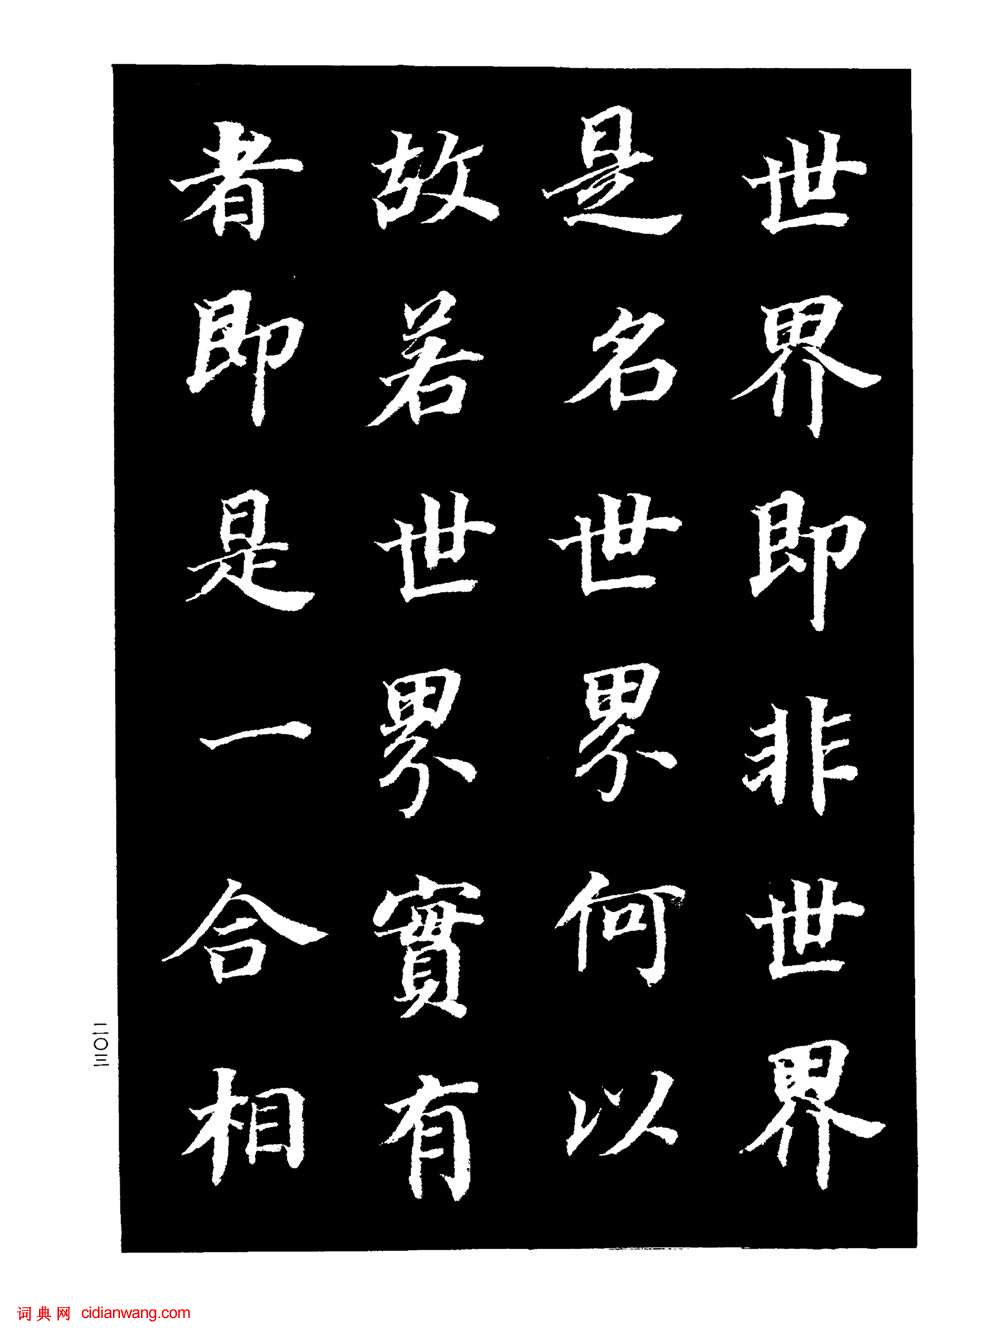 世界即非世界
是名世界何以
故若世界實有
者即是一合相
二〇三
词典网 cidianwang.com